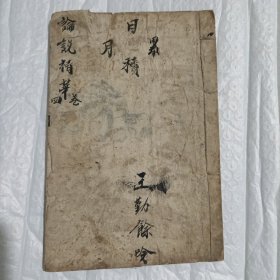 日累
月積
王勤餘
論說精華
卷四